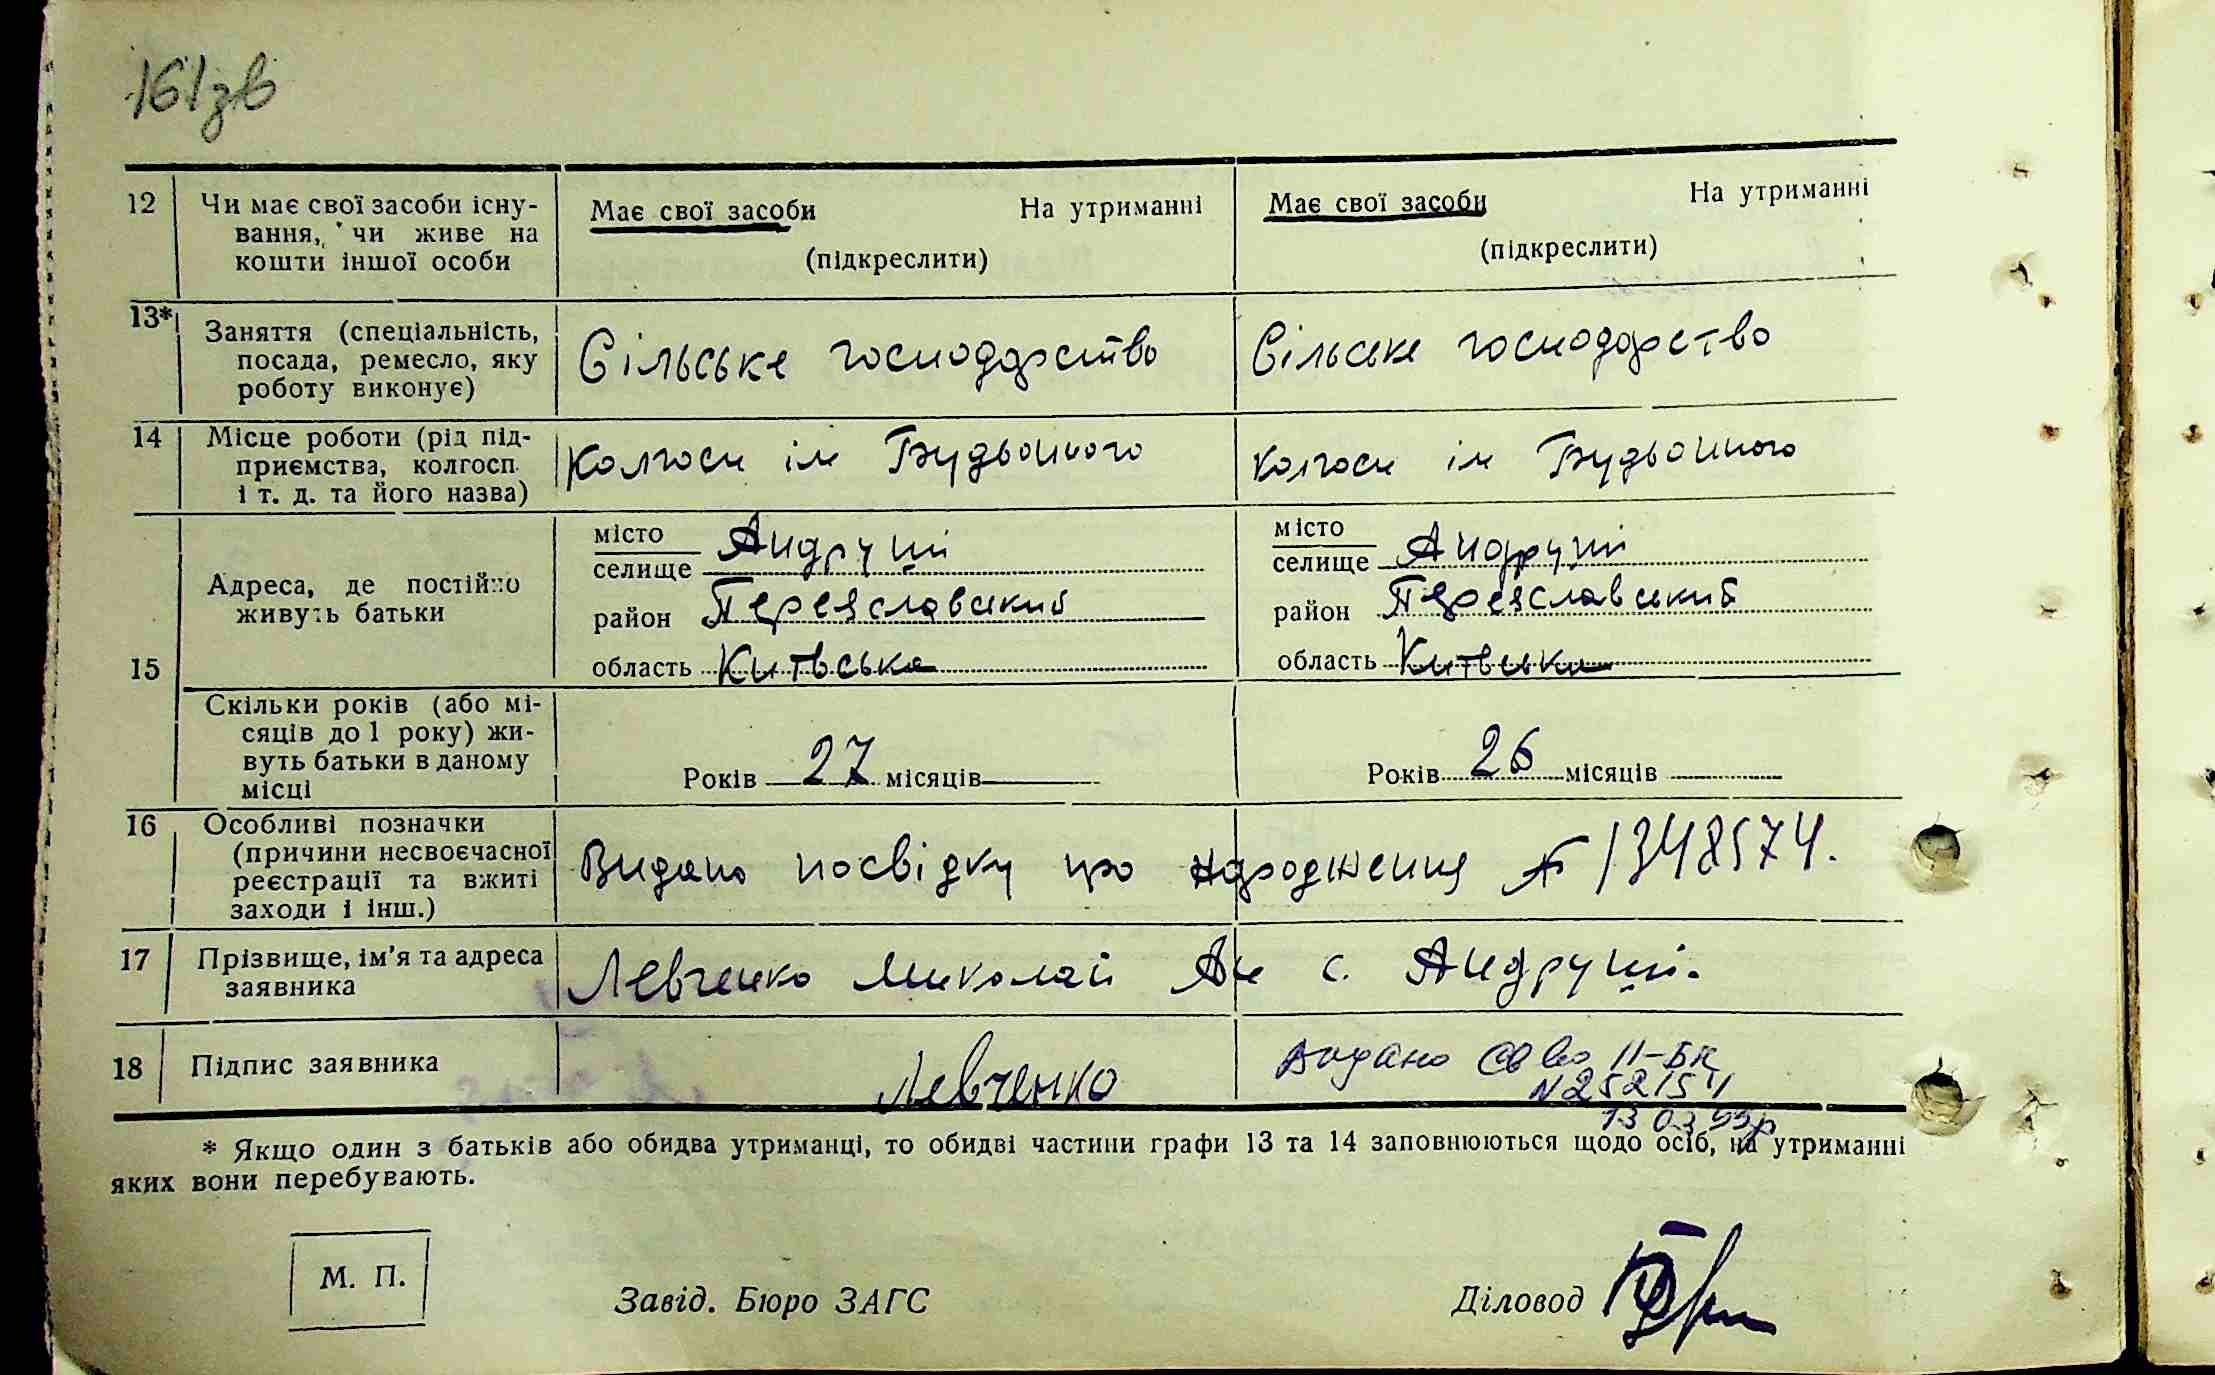 161зв
12 Чи має свої засоби існу-
вання, чи живе на
кошти іншої особи
Має свої засоби На утриманні
(підкреслити)
Має свої засоби На утриманні
(підкреслити)
13* Заняття (спеціальність,
посада, ремесло, яку
роботу виконує)
Сільське господарство
Сільське господарство
14 Місце роботи (рід під-
приємства, колгосп
і т. д. та його назва)
Колгосп ім Будьонного
Колгосп ім Будьонного
15 Адреса, де постійно
живуть батьки
місто
селище Андруші
район Переяславський
область Київська
місто
селище Андруші
район Переяславський
область Київська
Скільки років (або мі-
сяців до 1 року) жи-
вуть батьки в даному
місці
Років 27 місяців
Років 26 місяців
16 Особливі позначки
(причини несвоєчасної
реєстрації та вжиті
заходи і інш.)
Видано посвідку про народження № 1348574.
17 Прізвище, ім'я та адреса
заявника
Левченко Миколай Ан с. Андруші.
18 Підпис заявника
Левченко
Видано св во II-БК
N 252151
13 03 99р
* Якщо один з батьків або обидва утриманці, то обидві частини графи 13 та 14 заповнюються щодо осіб, на утриманні
яких вони перебувають.
М. П.
Завід. Бюро ЗАГС
Діловод